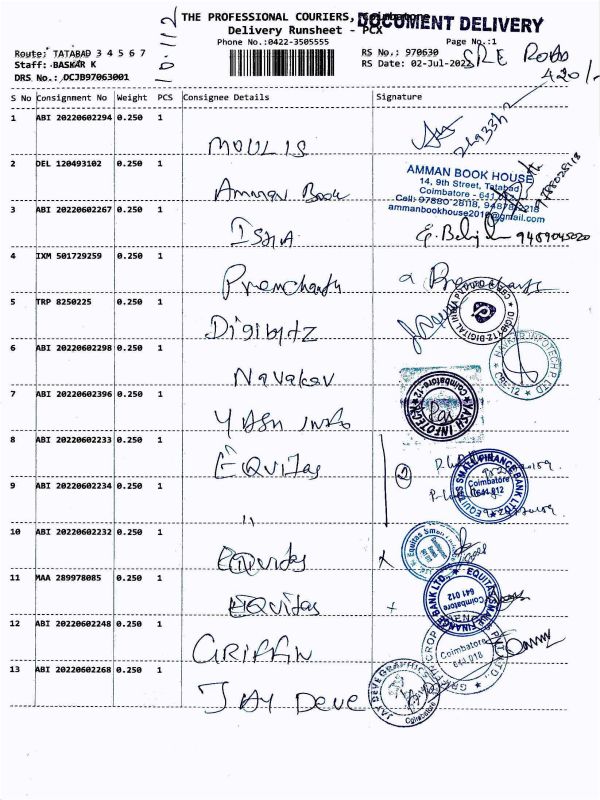 THE PROFESSIONAL COURIERS, Coimbatore
DOCUMENT DELIVERY
Delivery Runsheet - PCX
Phone No.:0422-3505555
Page No.:1
Route: TATABAD 3 4 5 6 7
Staff: BASKAR K
DRS No.: DCJB97063001
10-112
RS No.: 970630
RS Date: 02-Jul-2022
420/-
S No Consignment No Weight PCS Consignee Details Signature
1 ABI 20220602294 0.250 1 MOULIS
2 DEL 120493102 0.250 1 Amman Book
AMMAN BOOK HOUSE
14, 9th Street, Tatabad
Coimbatore - 641 012
Cell: 97880 28118,
9788028118
3 ABI 20220602267 0.250 1 ISHA
9489045020
4 IXM 501729259 0.250 1 Premchand
5 TRP 8250225 0.250 1 Digibytz
DIGIBYTZ DIGITAL INDIA
6 ABI 20220602298 0.250 1 Navakav
7 ABI 20220602396 0.250 1 YASH INFO
YASH INFOTECH Coimbatore-12
8 ABI 20220602233 0.250 1 EQuitas
EQUITAS SMALL FINANCE BANK LTD.,
Coimbatore
641 012
9 ABI 20220602234 0.250 1 "
10 ABI 20220602232 0.250 1 EQuitas
11 MAA 289978085 0.250 1 EQuitas
EQUITAS SMALL FINANCE BANK LTD.,
Coimbatore
641 012
12 ABI 20220602248 0.250 1 GRIFFIN
Coimbatore
641 018
13 ABI 20220602268 0.250 1 JAY DEVE
JAY DEVE GRAPHICS
Coimbatore